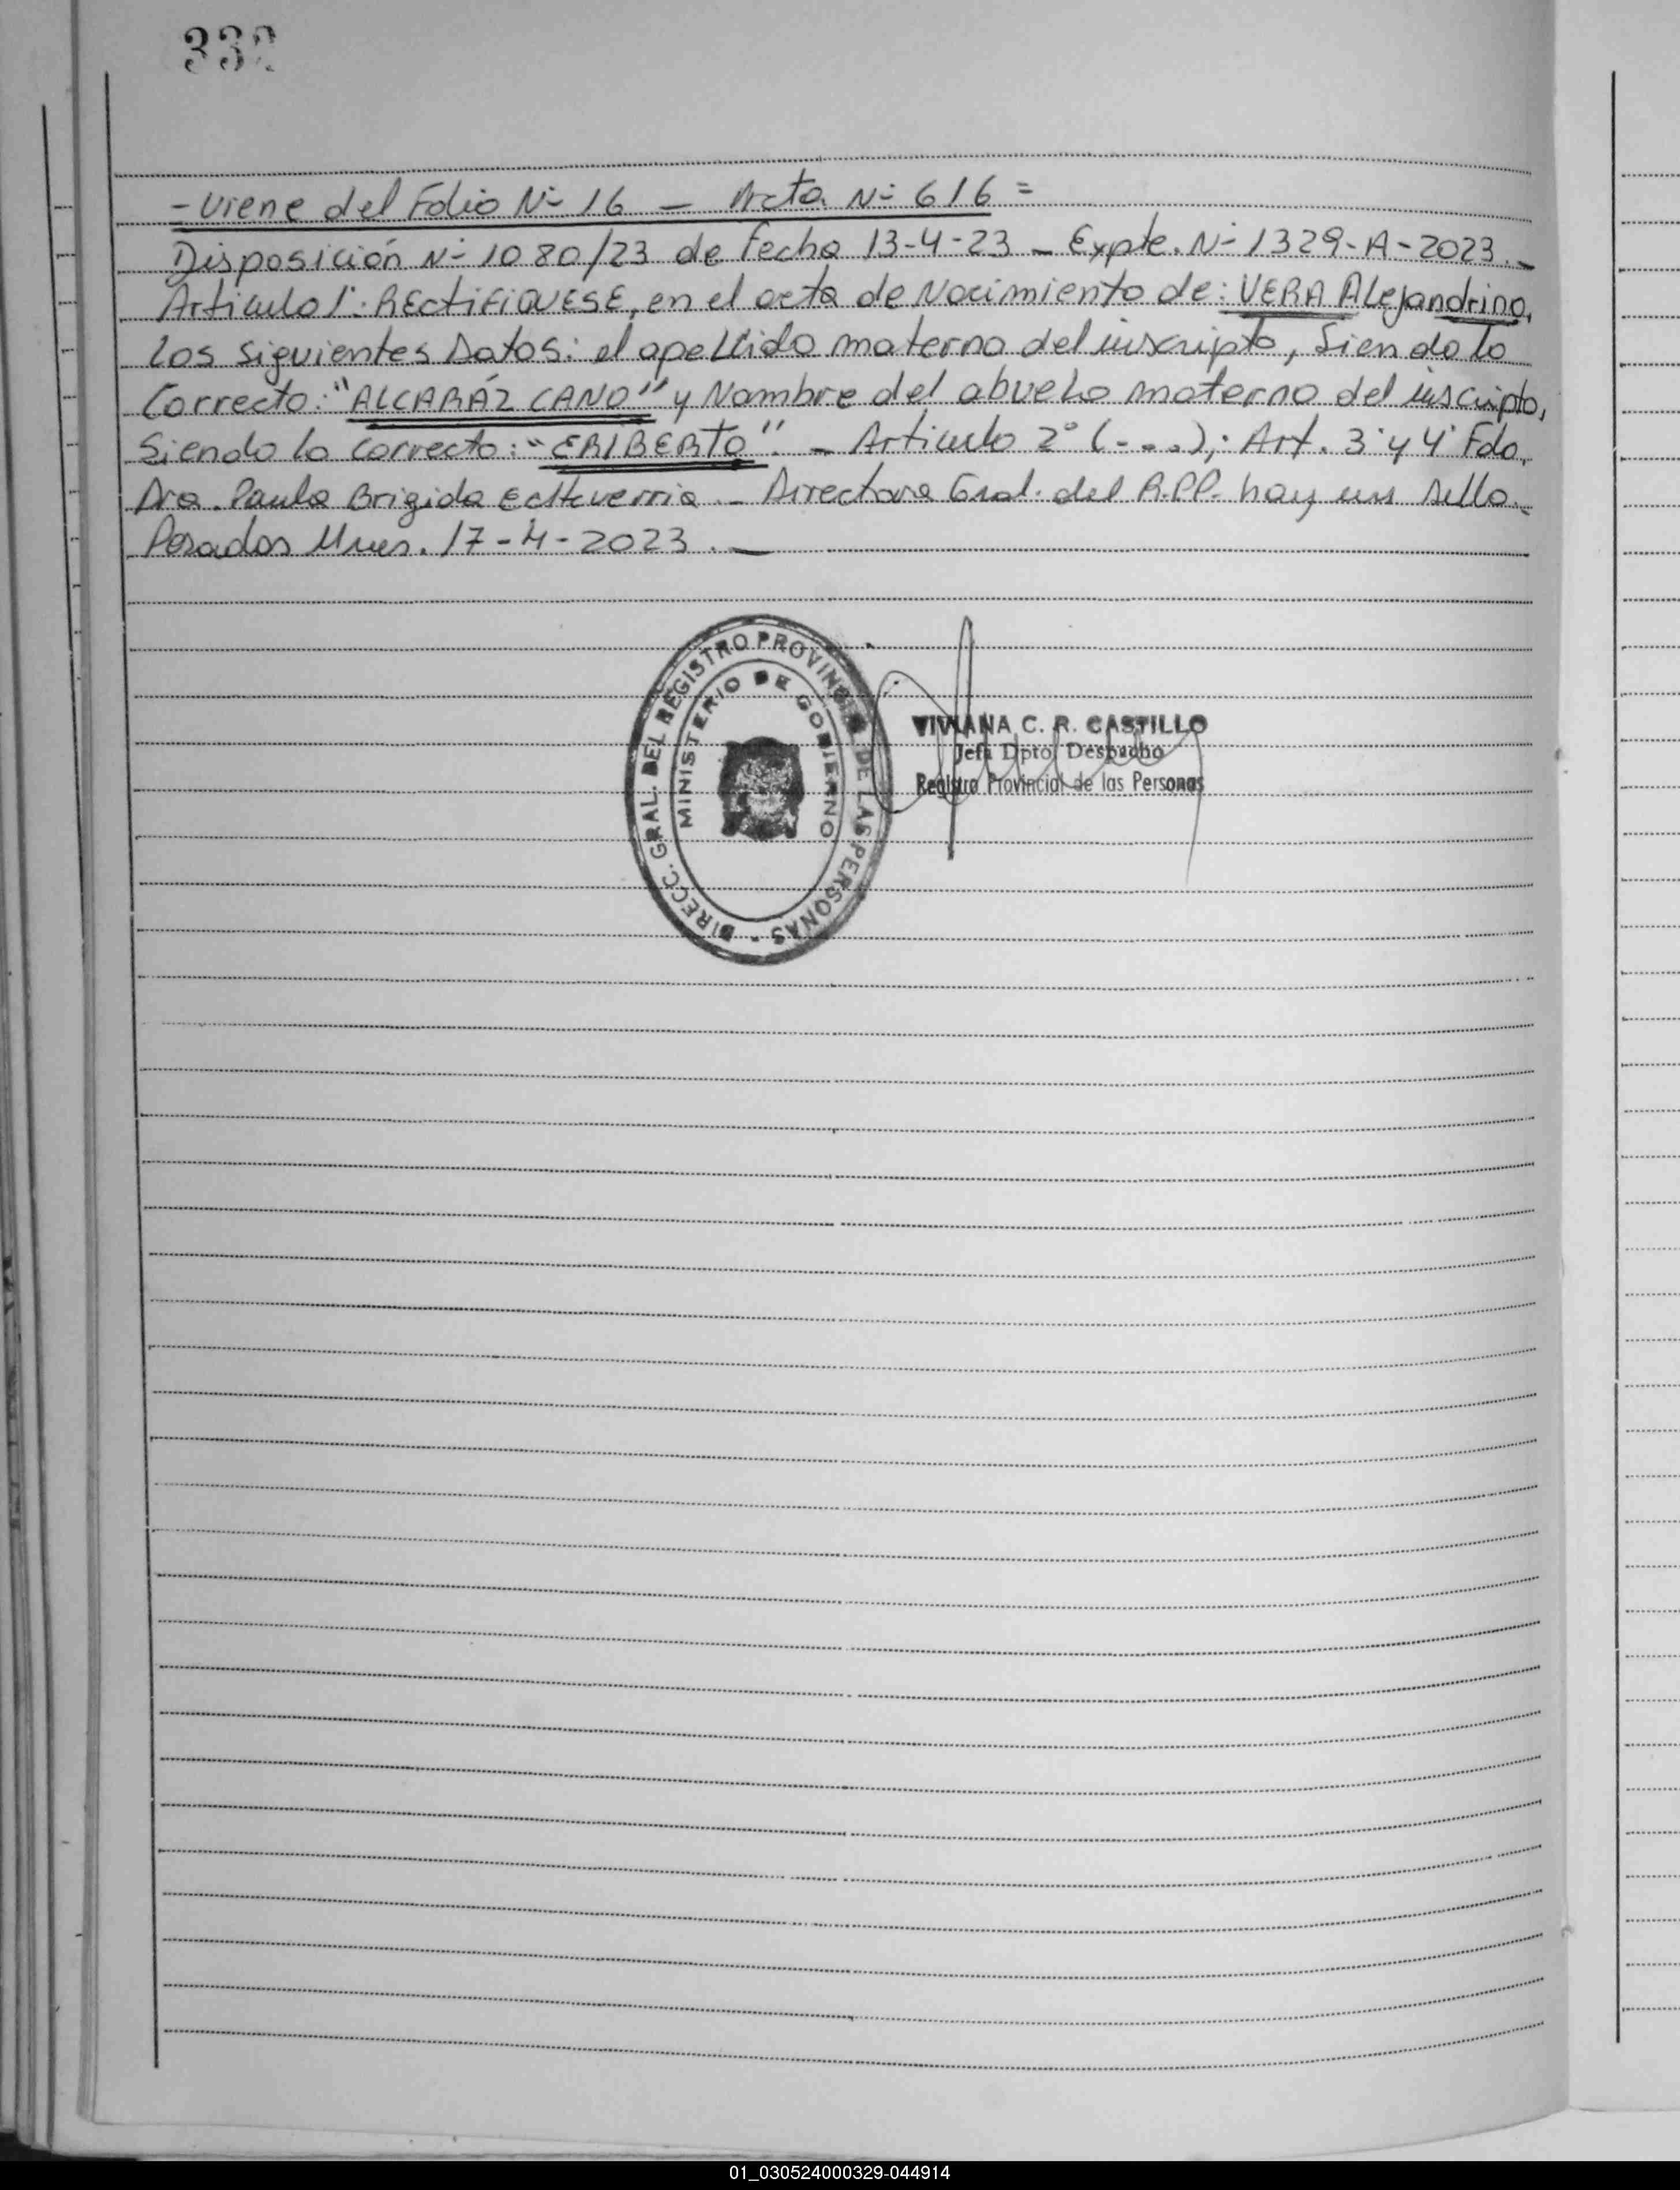 332
- Viene del Folio Nº 16 - Acta Nº 616 =
Disposición Nº 1080/23 de Fecha 13-4-23 - Expte. Nº 1329-A-2023.-
Articulo 1º: RECTIFIQUESE, en el acta de Nacimiento de: VERA Alejandrino,
los siguientes Datos: el apellido materno del inscripto, siendo lo
Correcto: "ALCARÁZ CANO" y Nombre del abuelo materno del inscripto,
siendo lo correcto: "ERIBERTO". - Articulo 2º (-...); Art. 3º y 4º Fdo.
Dra. Paula Brigida Echeverria - Directora Gral. del R.P.P. hay un sello.
Posadas Mnes. 17-4-2023.-
DIRECC. GRAL. DEL REGISTRO PROVINCIAL DE LAS PERSONAS -
MINISTERIO DE GOBIERNO
VIVIANA C. R. CASTILLO
Jefa Dpto. Despacho
Registro Provincial de las Personas
01_030524000329-044914